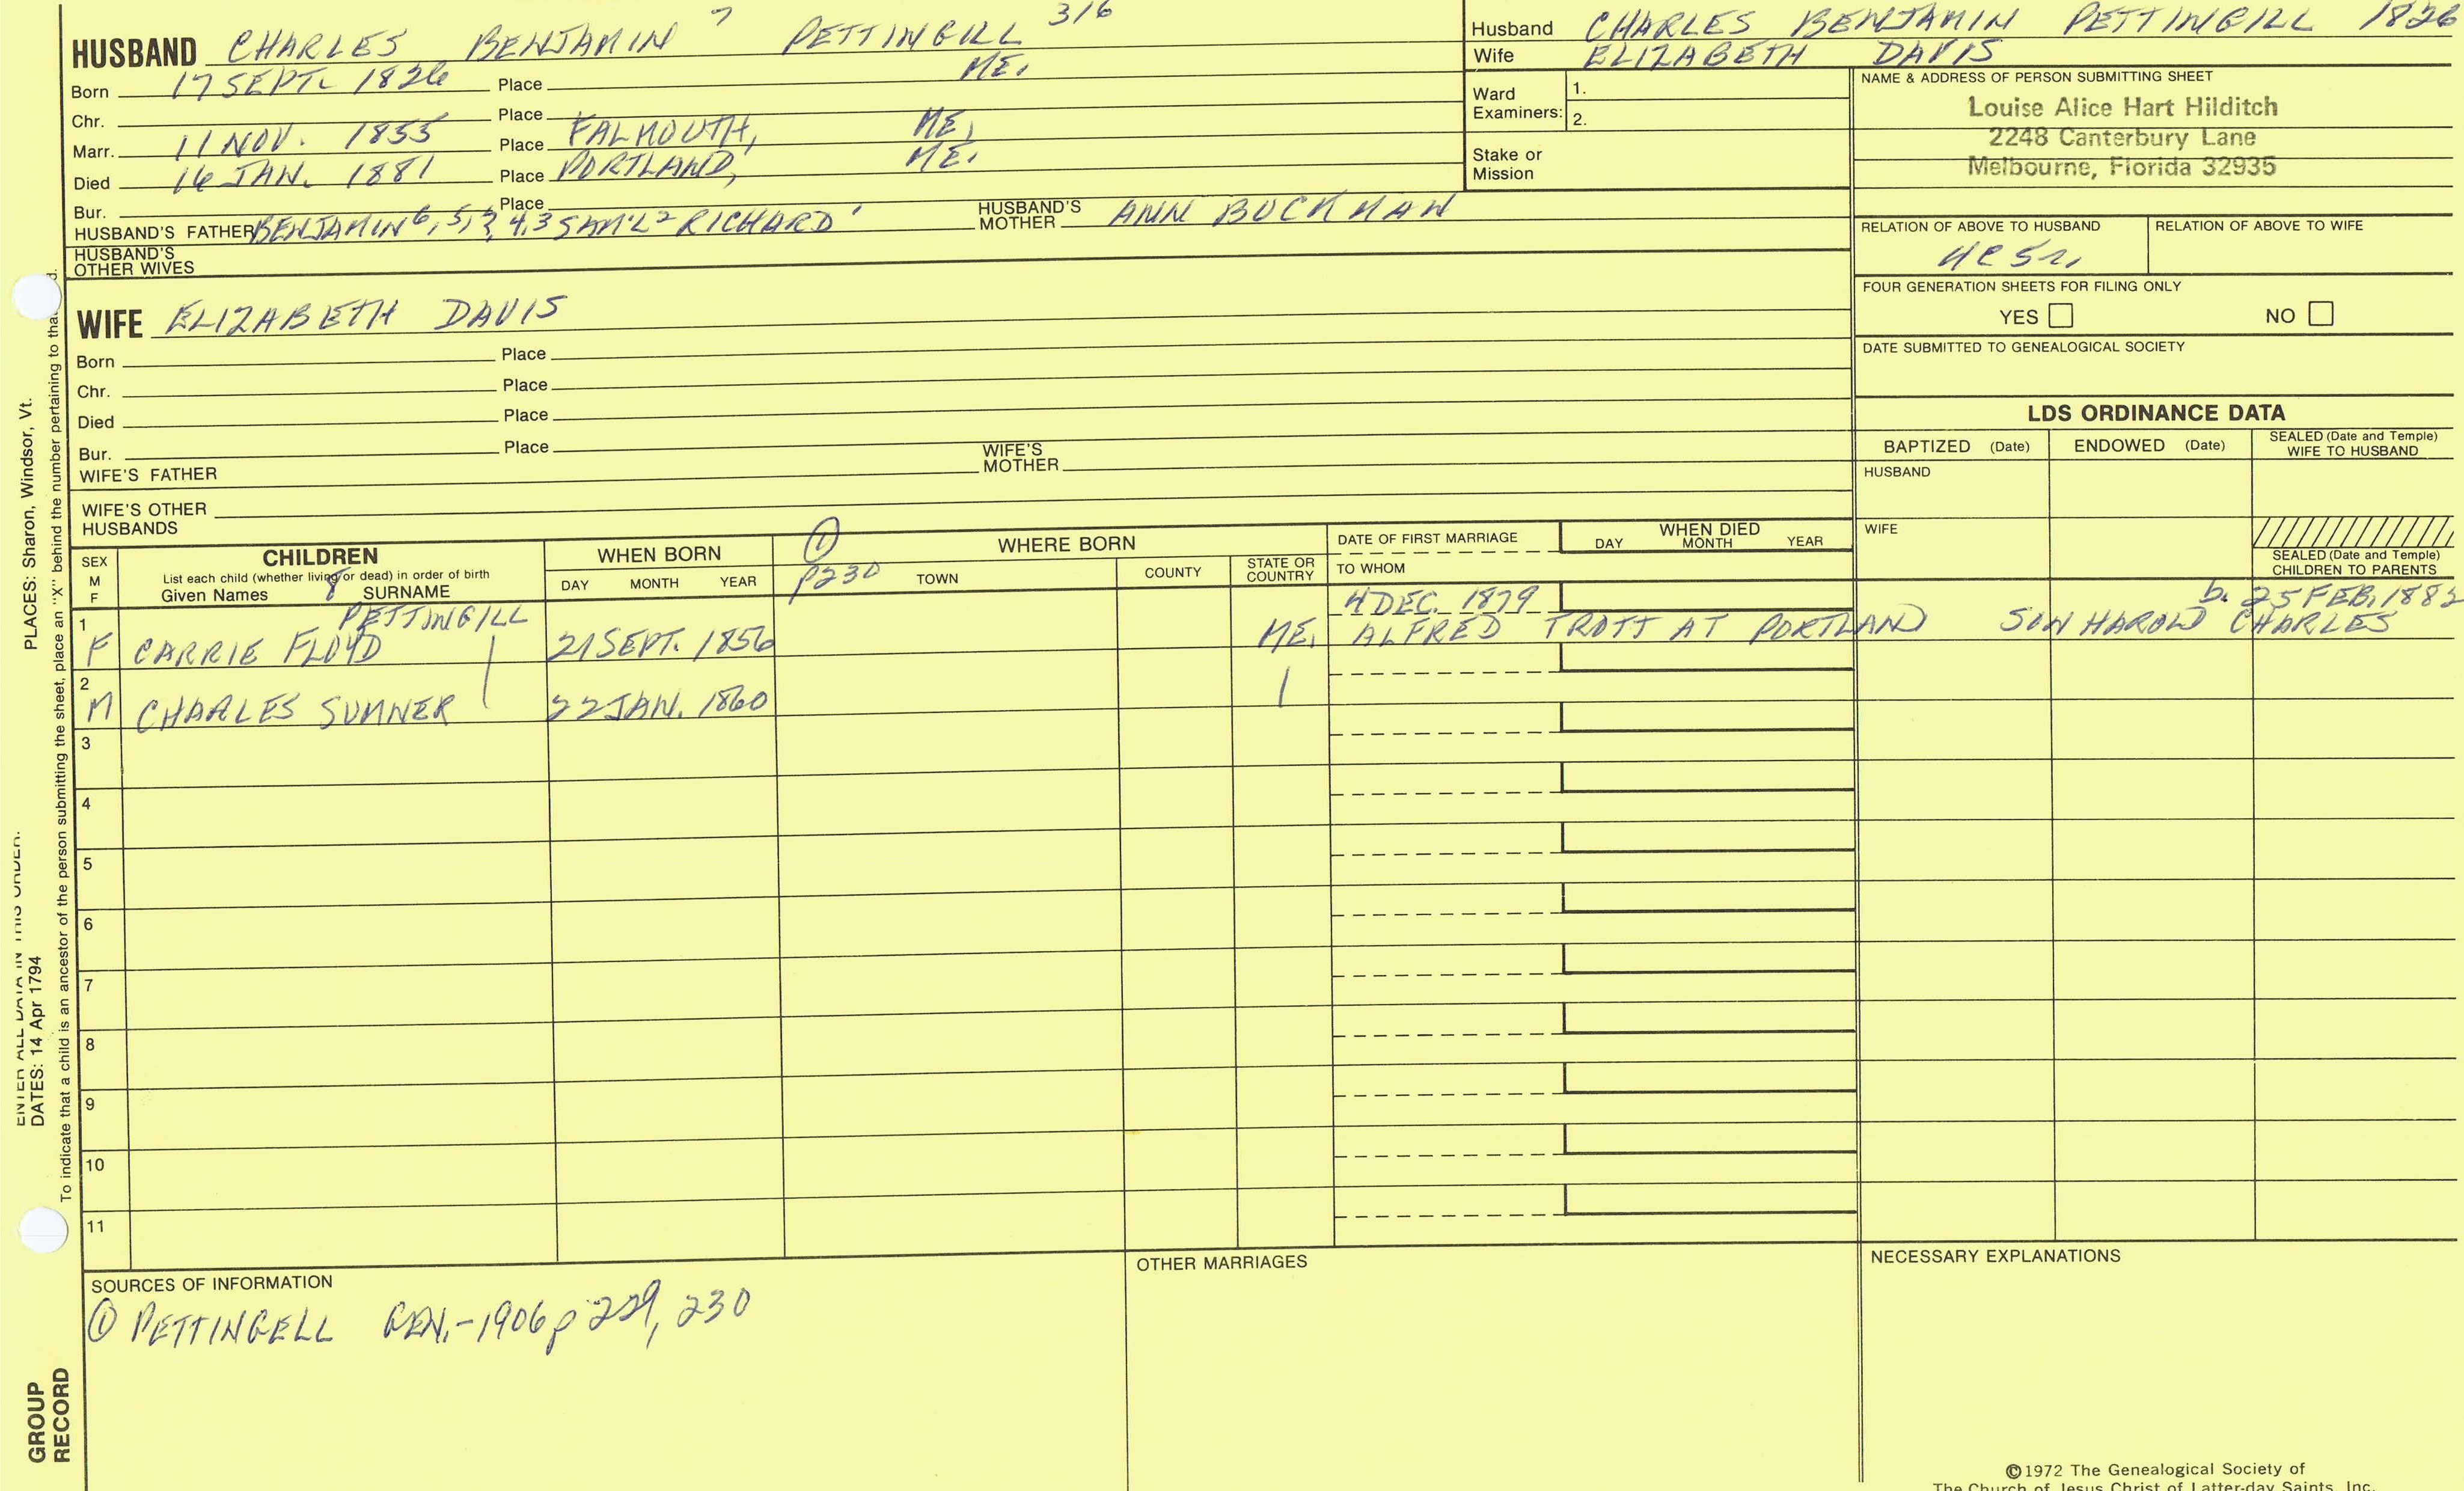 HUSBAND CHARLES BENJAMIN 7 PETTINGILL 316
Born 17 SEPT. 1826 Place ME.
Chr. Place
Marr. 11 NOV. 1855 Place FALMOUTH, ME.
Died 16 JAN. 1881 Place PORTLAND, ME.
Bur. Place
HUSBAND'S FATHER BENJAMIN 6, 5, ?, 4, 3 SAM'L 2 RICHARD 1 HUSBAND'S MOTHER ANN BUCKMAN
HUSBAND'S OTHER WIVES
Husband CHARLES BENJAMIN PETTINGILL 1826
Wife ELIZABETH DAVIS
Ward Examiners: 1.
2.
Stake or Mission
NAME & ADDRESS OF PERSON SUBMITTING SHEET
Louise Alice Hart Hilditch
2248 Canterbury Lane
Melbourne, Florida 32935
RELATION OF ABOVE TO HUSBAND RELATION OF ABOVE TO WIFE
FOUR GENERATION SHEETS FOR FILING ONLY
YES NO
DATE SUBMITTED TO GENEALOGICAL SOCIETY
WIFE ELIZABETH DAVIS
Born Place
Chr. Place
Died Place
Bur. Place
WIFE'S FATHER WIFE'S MOTHER
WIFE'S OTHER HUSBANDS
LDS ORDINANCE DATA
BAPTIZED (Date) ENDOWED (Date) SEALED (Date and Temple) WIFE TO HUSBAND
HUSBAND
WIFE
SEALED (Date and Temple)
CHILDREN TO PARENTS
SEX M F
CHILDREN
List each child (whether living or dead) in order of birth
Given Names 8 SURNAME
WHEN BORN
DAY MONTH YEAR
① p230
WHERE BORN
TOWN COUNTY STATE OR COUNTRY
DATE OF FIRST MARRIAGE
TO WHOM
WHEN DIED
DAY MONTH YEAR
PETTINGILL 4 DEC. 1879 b. 25 FEB. 1882
1 F CARRIE FLOYD 21 SEPT. 1856 ME. ALFRED TROTT AT PORTLAND SON HAROLD CHARLES
2 M CHARLES SUMNER 22 JAN. 1860
3
4
5
6
7
8
9
10
11
SOURCES OF INFORMATION
① PETTINGELL GEN.-1906 p 229, 230
OTHER MARRIAGES
NECESSARY EXPLANATIONS
©1972 The Genealogical Society of
The Church of Jesus Christ of Latter-day Saints, Inc.
ENTER ALL DATA IN THIS ORDER:
DATES: 14 Apr 1794
PLACES: Sharon, Windsor, Vt.
To indicate that a child is an ancestor of the person submitting the sheet, place an "X" behind the number pertaining to that
GROUP
RECORD